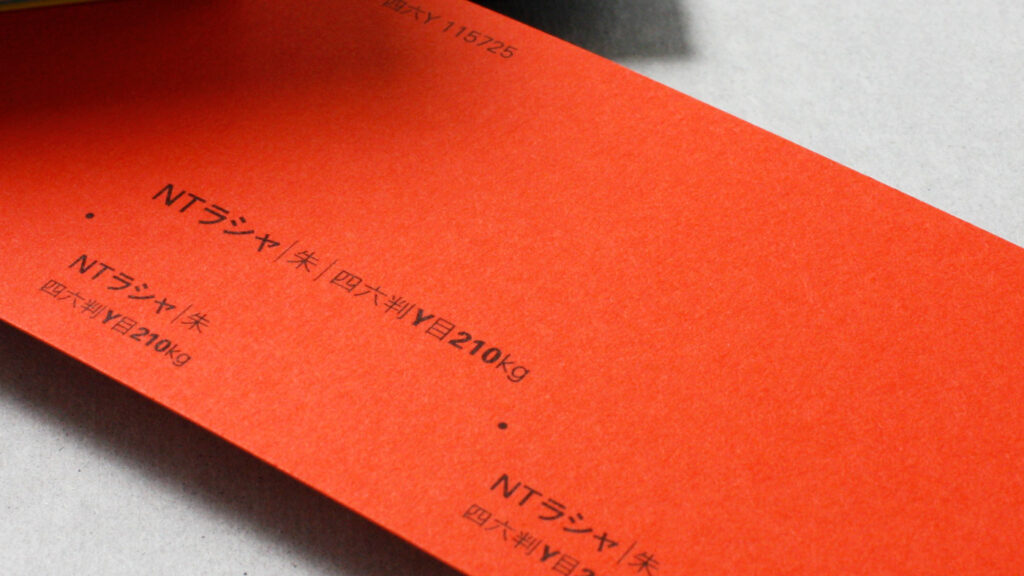 四六Y 115725
NTラシャ|朱|四六判Y目210kg
NTラシャ|朱
四六判Y目210kg
NTラシャ|朱
四六判Y目2